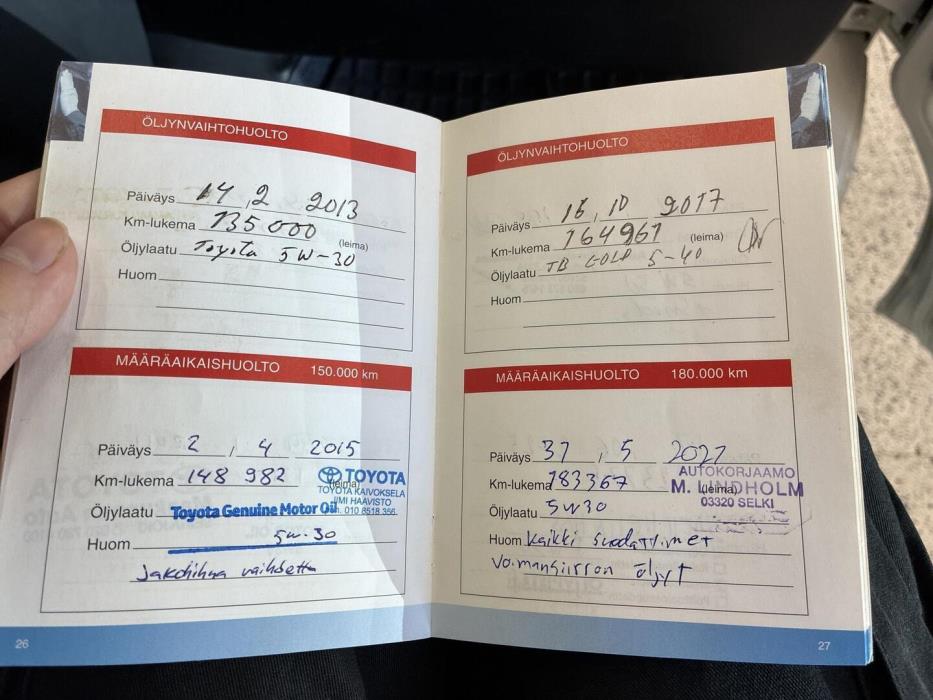 ÖLJYNVAIHTOHUOLTO
Päiväys 14 , 2 2013
Km-lukema 135000
(leima)
Öljylaatu Toyota 5W-30
Huom
MÄÄRÄAIKAISHUOLTO 150.000 km
Päiväys 2 / 4 2015
Km-lukema 148 982
(leima)
TOYOTA
TOYOTA KAIVOKSELA
IMI HAAVISTO
Öljylaatu Toyota Genuine Motor Oil
h. 010 8518 356
Huom 5W-30
Jakohihna vaihdettu
26
ÖLJYNVAIHTOHUOLTO
Päiväys 16 , 10 2017
Km-lukema 164961
(leima)
Öljylaatu TB GOLD 5-40
Huom
MÄÄRÄAIKAISHUOLTO 180.000 km
Päiväys 31 , 5 2021
Km-lukema 183367
(leima)
AUTOKORJAAMO
M. LINDHOLM
03320 SELKI
Öljylaatu 5W30
Huom kaikki suodattimet
Voimansiirron öljyt
27